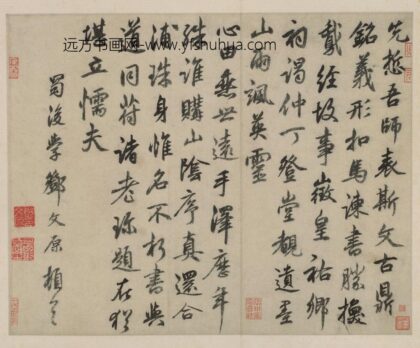 远方书画网-www.yfshuhua.com
先哲吾師表斯文古鼎
銘義形扣馬諫書勝換
鵝經故事徵皇祐鄉
祠謁仲丁登堂觀遺墨
山雨颯英靈
心田垂世遠手澤歷年
殊誰購山陰序真還合
浦珠身惟名不朽書與
道同符諸老珍題在猶
堪立懦夫
蜀後學鄧文原頓首